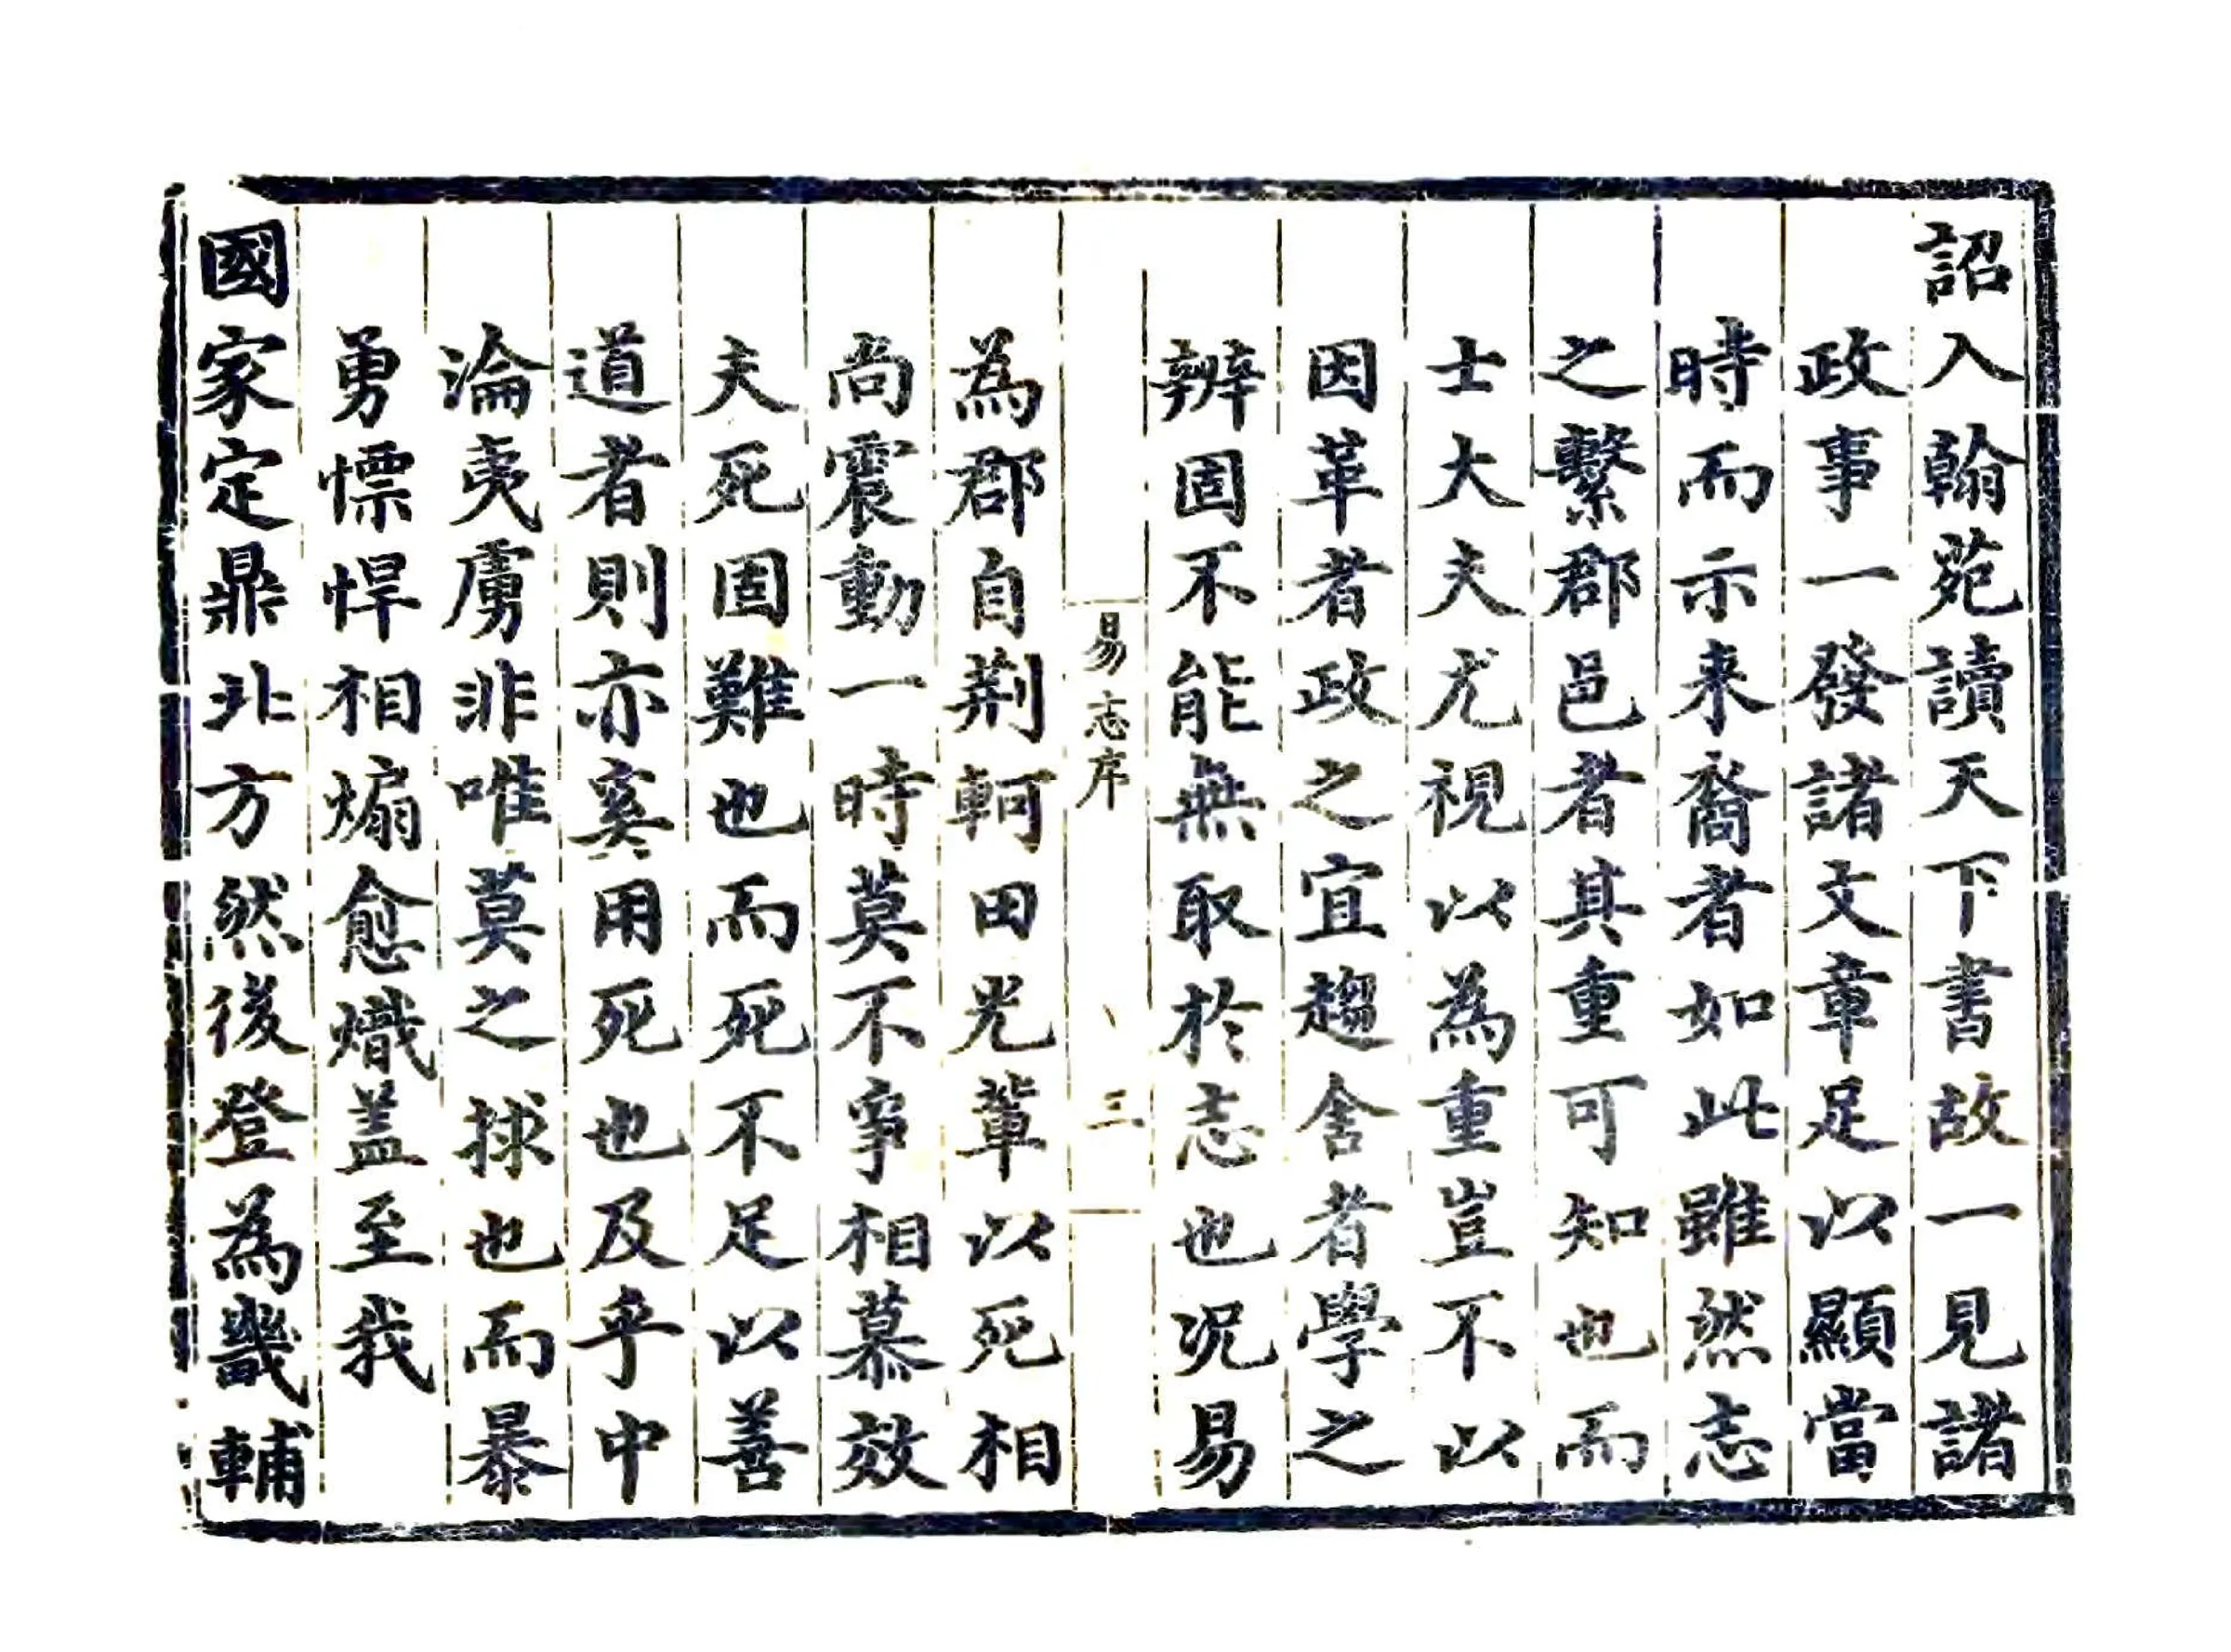 詔入翰苑讀天下書故一見諸
政事一發諸文章足以顯當
時而示来裔者如此雖然志
之繫郡邑者其重可知也而
士大夫尤視以為重豈不以
因革者政之宜趨舍者學之
辨固不能無取於志也况易
易志序 三
為郡自荆軻田光軰以死相
尚震動一時莫不爭相慕效
夫死固難也而死不足以善
道者則亦奚用死也及乎中
淪夷虜非唯莫之捄也而暴
勇慓悍相煽愈熾盖至我
國家定鼎北方然後登為畿輔